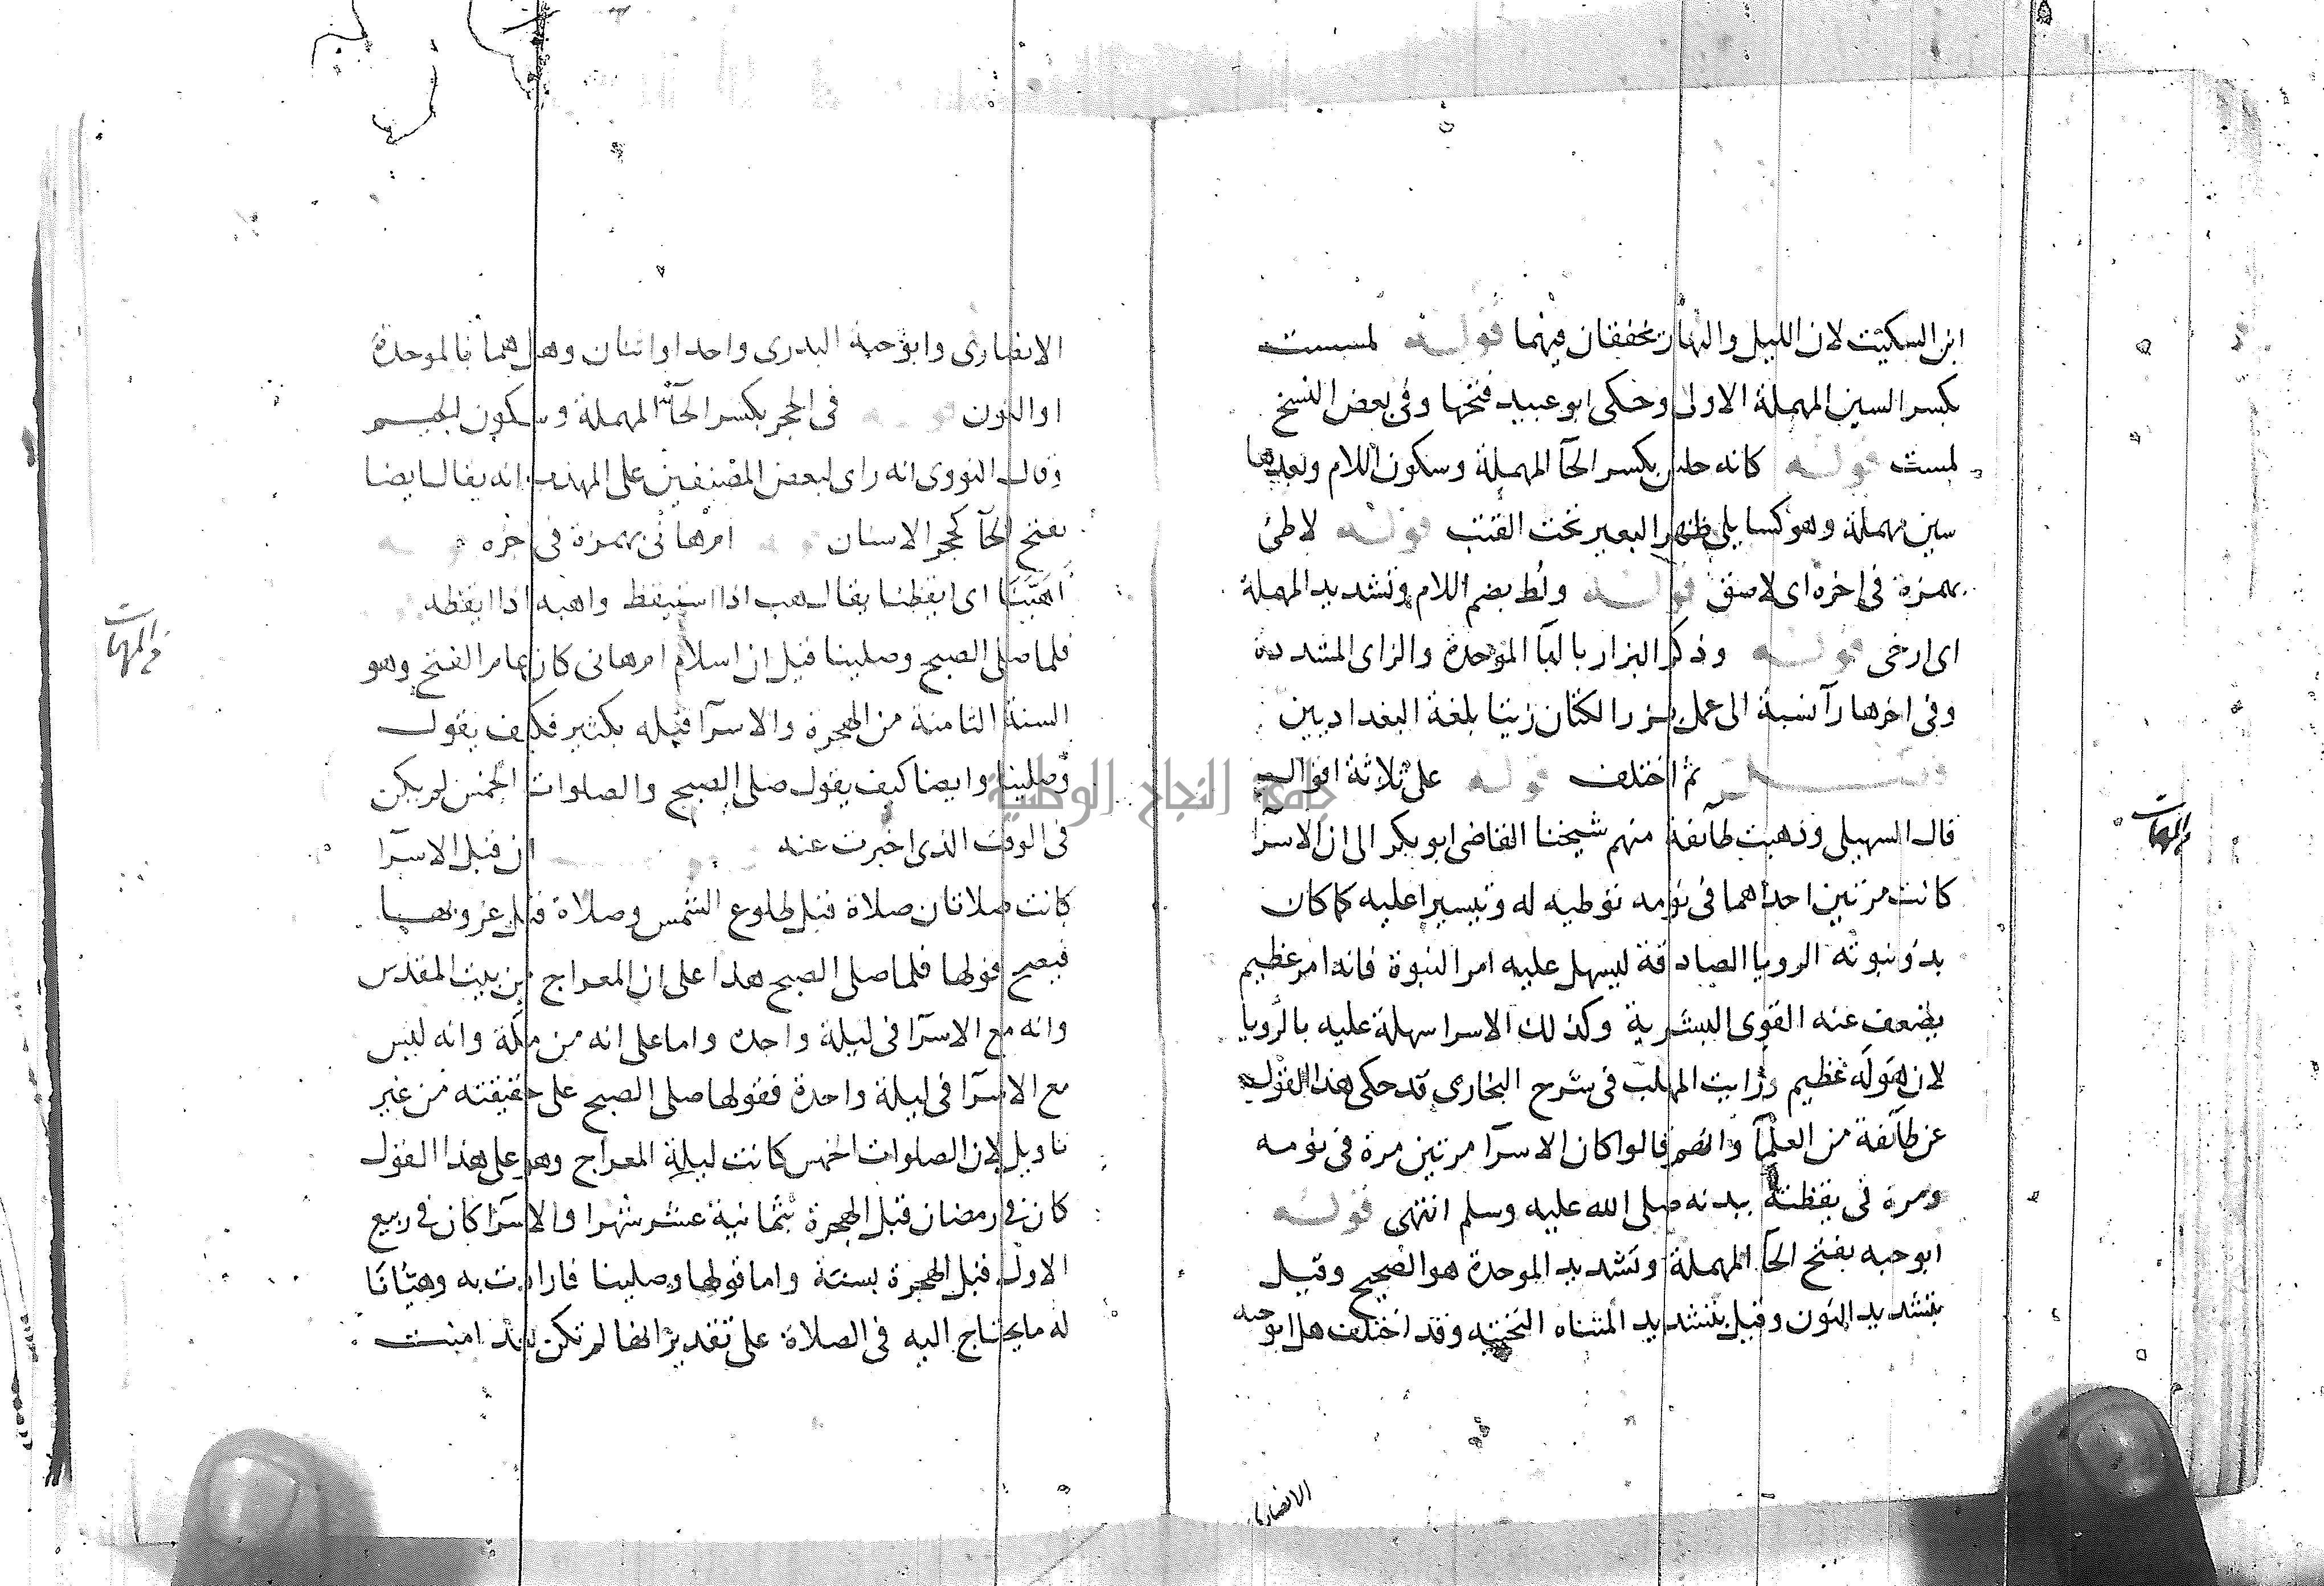 ابن السكيت لان الليل والنهار يخفقان فيهما قوله لمسست
بكسر السين المهملة الاولى وحكى ابو عبيد فتحها وفى بعض النسخ
لمست قوله كانه حلس بكسر الحآ المهملة وسكون اللام وبعدها
سين مهملة وهو كسا يلى ظهر البعير تحت القتب قوله لاطئ
بهمزة فى اخره اى لاصق قوله ولط بضم اللام وتشديد المهملة
اى ارخى قوله وذكر البزار بالبآ الموحدة والزاى المشددة
وفى اخرها رآ نسبة الى عمل بزر الكتان زيتا بلغة البغداديين
فصل ثم اختلف قوله على ثلاثة اقوال
قال السهيلى وذهبت طآئفة منهم شيخنا القاضى ابو بكر الى ان الاسرآ
كانت مرتين احداهما فى نومه توطيه له وتيسيرا عليه كما كان
بدو نبوته الرويا الصادقة ليسهل عليه امر النبوة فانه امر عظيم
يضعف عنه القوى البشرية وكذلك الاسرا سهلة عليه بالرويا
لان هوله عظيم ورايت المهلب فى شرح البخارى قد حكى هذا القول
عن طآئفة من العلمآ وانهم قالوا كان الاسرآ مرتين مرة فى نومه
ومرة فى يقظته ببدنه صلى الله عليه وسلم انتهى قوله
ابو حبه بفتح الحآ المهملة وتشديد الموحدة هو الصحيح وقيل
بتشديد النون وقيل بتشديد المثناه التحتيه وقد اختلف هل ابو حبه
الانصارى
الانصارى وابو حبة البدرى واحد او اثنان وهل هما بالموحدة
او النون قوله فى الحجر بكسر الحآ المهملة وسكون الجيم
وقال النووى انه راى لبعض المصنفين على المهذب انه يقال ايضا
بفتح الحآ كحجر الانسان قوله ام هانى بهمزة فى اخره قوله
اهبنا اى ايقظنا يقال هب اذا استيقظ واهبه اذا ايقظه
فلما صلى الصبح وصلينا قيل ان اسلام ام هانى كان عام الفتح وهو
السنة الثامنة من الهجرة والاسرآ قبله بكثير فكيف يقول
وصلينا وايضا كيف يقول صلى الصبح والصلوات الخمس لم يكن
فى الوقت الذى اخبرت عنه ان قبل الاسرآ
كانت صلاتان صلاة قبل طلوع الشمس وصلاة قبل غروبها
فيصح قولها فلما صلى الصبح هذا على ان المعراج من بيت المقدس
وانه مع الاسرآ فى ليلة واحدة واما على انه من مكة وانه ليس
مع الاسرآ فى ليلة واحدة فقولها صلى الصبح على حقيقته من غير
تاويل لان الصلوات الخمس كانت ليلة المعراج وهو على هذا القول
كان فى رمضان قبل الهجرة بثمانية عشر شهرا والاسرآ كان فى ربيع
الاول قبل الهجرة بسنة واما قولها وصلينا فارادت به وهيانا
له ما يحتاج اليه فى الصلاة على تقدير انها لم تكن بعد امنت
جامعة النجاح الوطنية